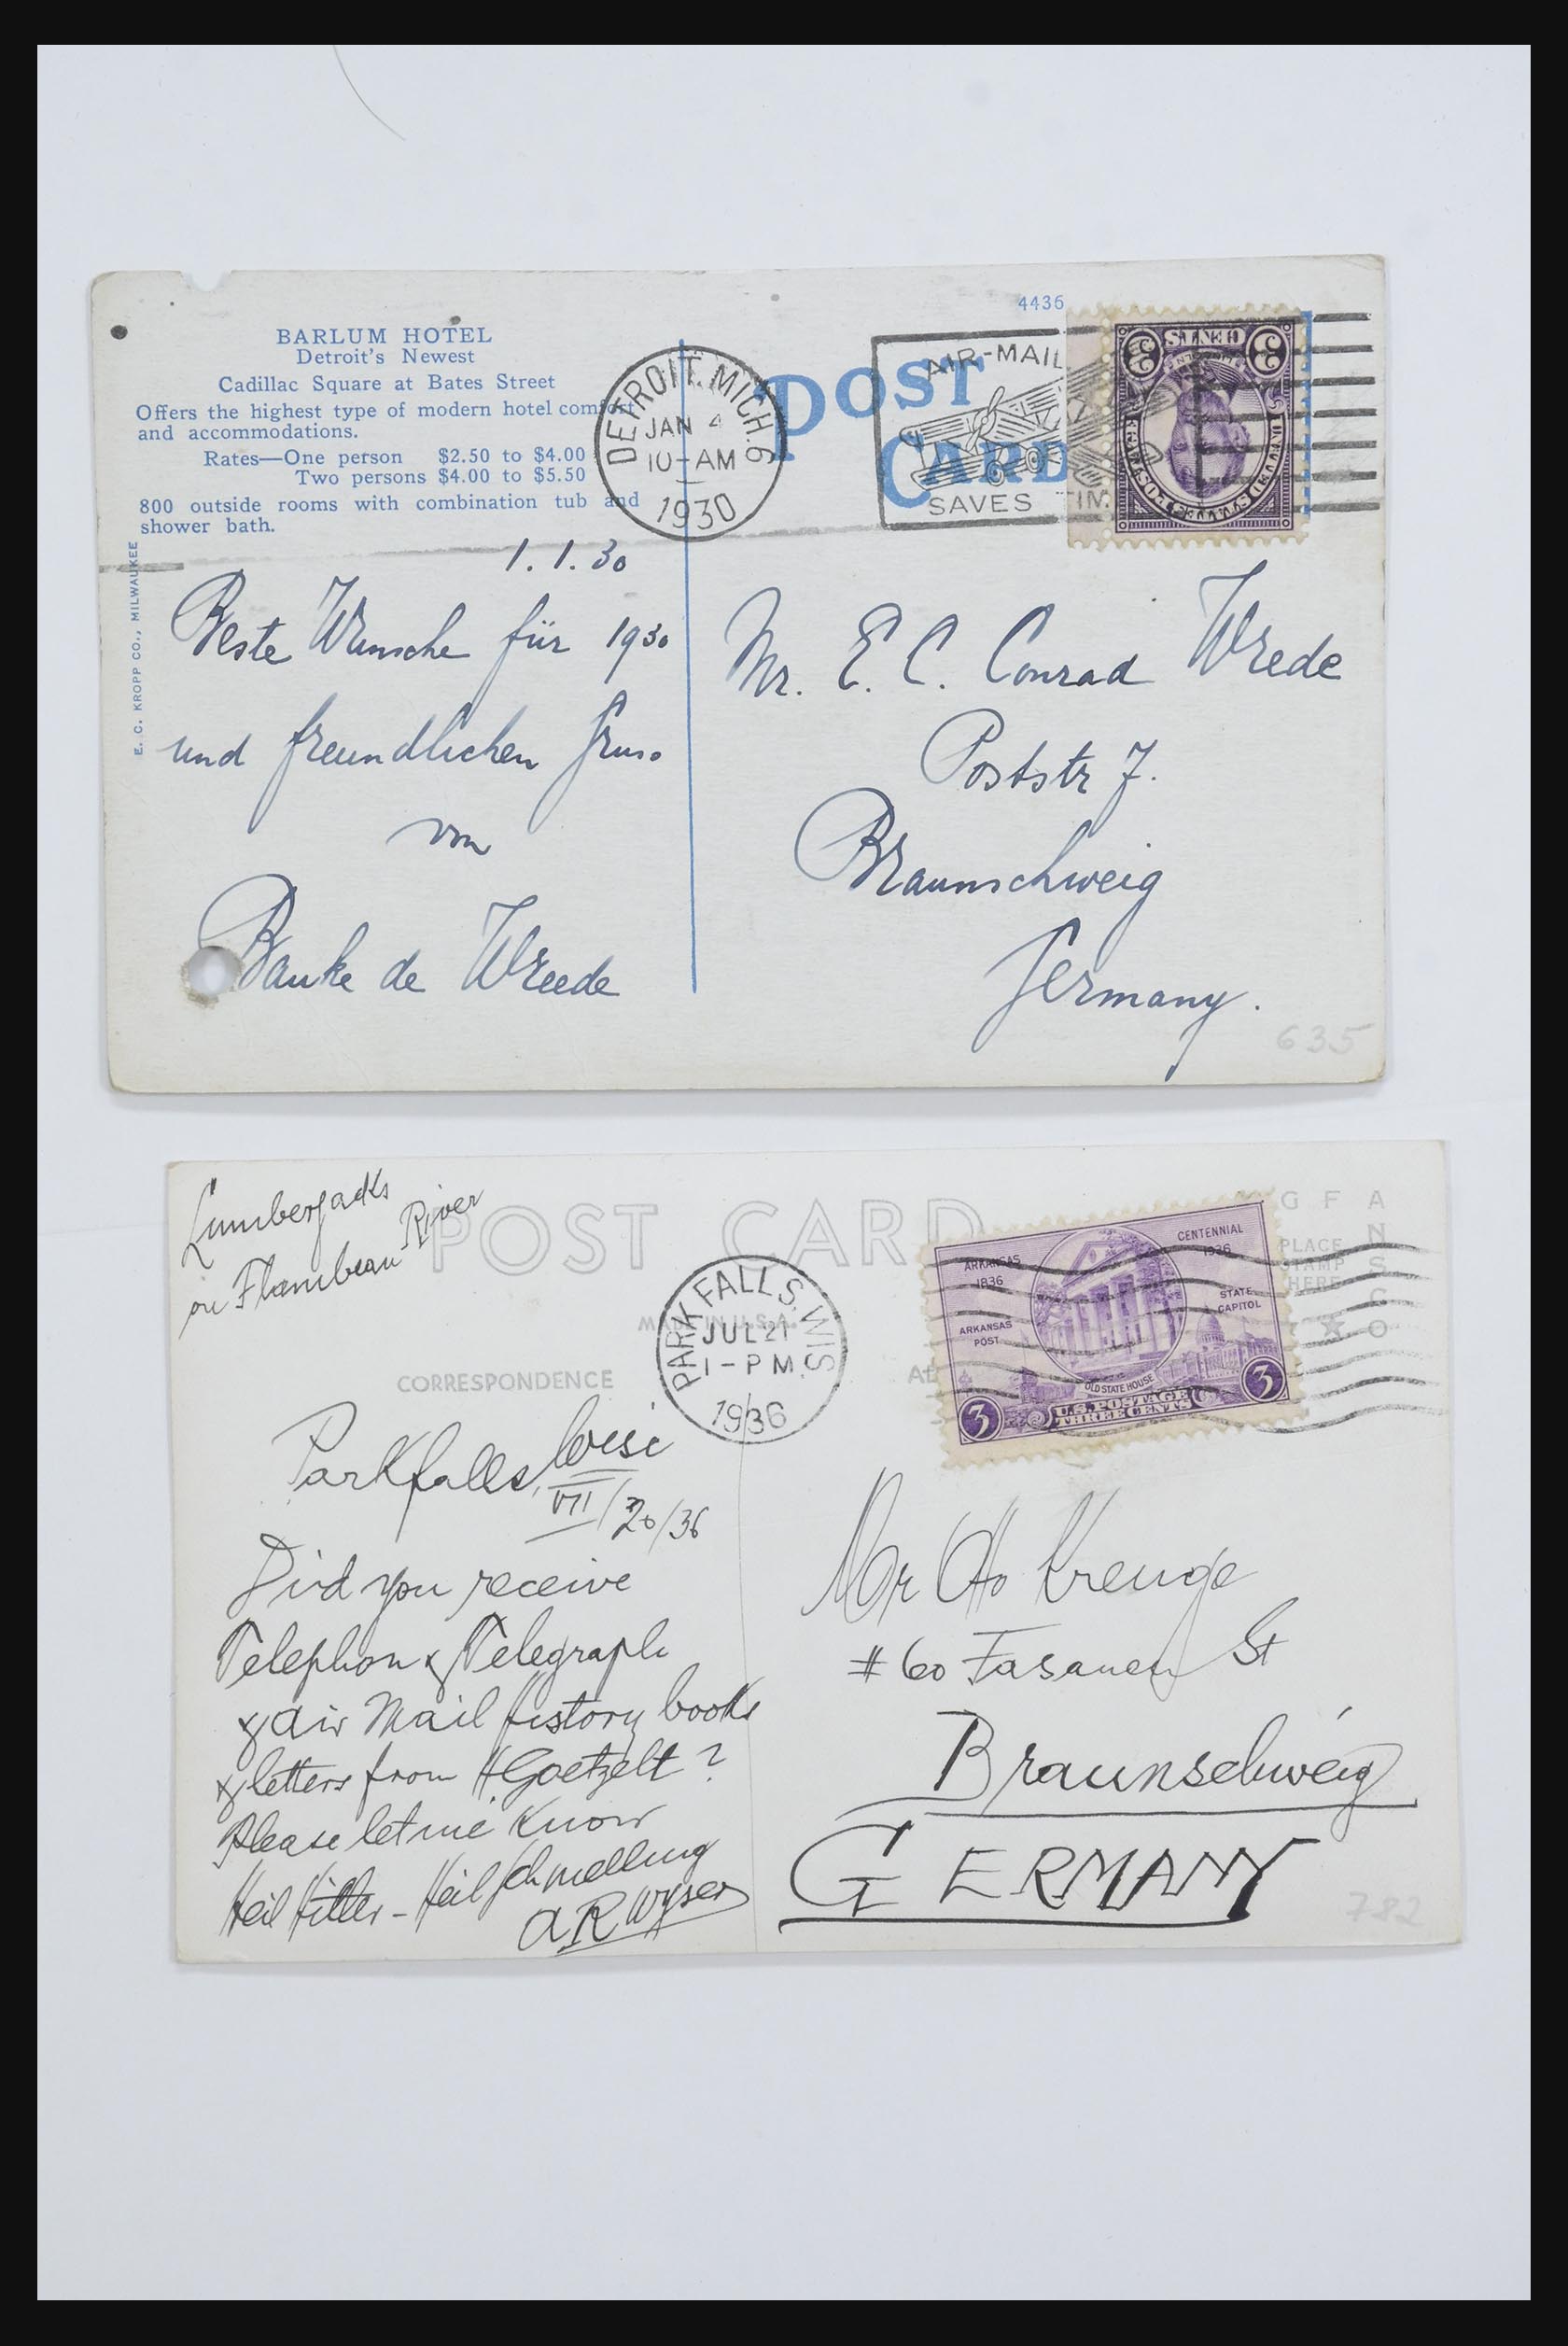 4436
BARLUM HOTEL
Detroit's Newest
Cadillac Square at Bates Street
Offers the highest type of modern hotel comfort
and accommodations.
Rates—One person $2.50 to $4.00
Two persons $4.00 to $5.50
800 outside rooms with combination tub and
shower bath.
E. C. KROPP CO., MILWAUKEE
DETROIT, MICH. 6
JAN 4
10-AM
1930
POST
CARD
AIR-MAIL
SAVES TIM
CENTS
3 3
LINCOLN
UNITED STATES POSTAGE
1.1.30
Beste Wünsche für 1930
und freundlichen Grus.
von
Bauke de Wreede
Mr. E. C. Conrad Wrede
Poststr 7.
Braunschweig
Germany.
635
Lumberjacks
on Flambeau River
POST CARD
MADE IN U.S.A.
CORRESPONDENCE
PARK FALLS, WIS.
JUL 21
1-PM
1936
AGFA
ANSCO
PLACE
STAMP
HERE
ARKANSAS
1836
CENTENNIAL
1936
ARKANSAS
POST
STATE
CAPITOL
OLD STATE HOUSE
U.S. POSTAGE
THREE CENTS
3 3
Parkfalls, Wisc
VII/20/36
Did you receive
Telephon & Telegraph
& Air Mail history books
& letters from H Goetzelt?
Please let me know
Heil Hitler - Heil Schmelling
A R Wyser
Mr Otto Kreuge
#60 Fasanen St
Braunschweig
GERMANY
782